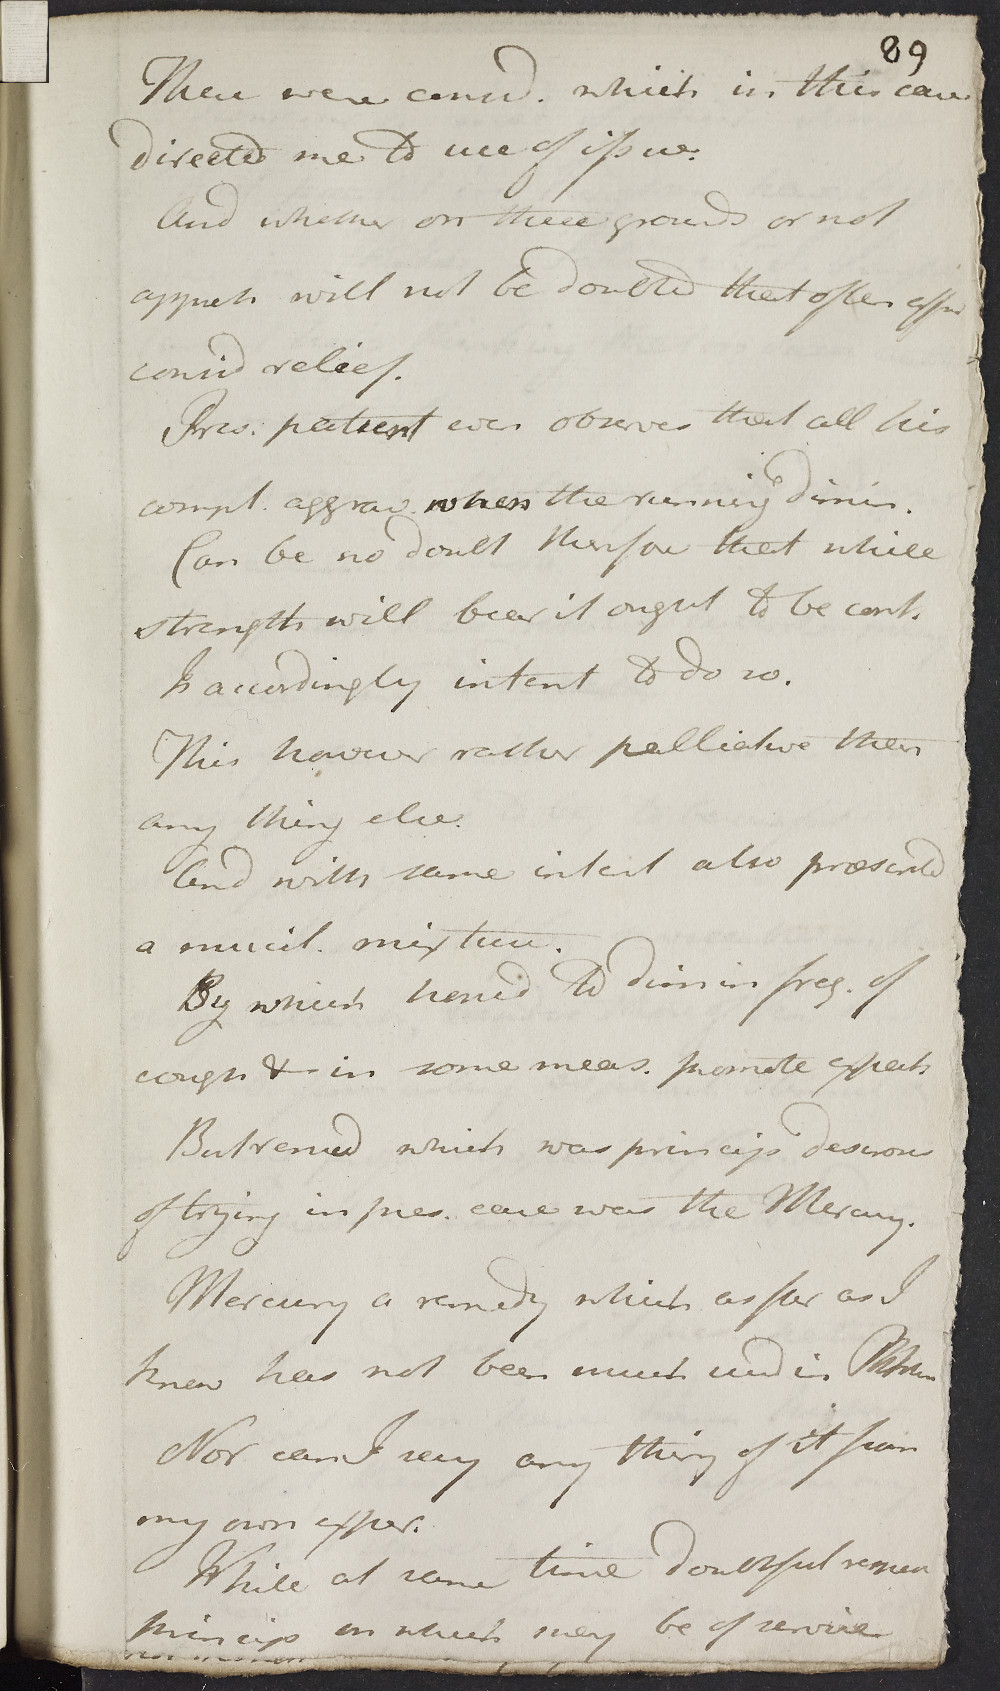 89
These were consid. which in this case
directed me to use of issue.
And whether on these grounds or not
appreh will not be doubted that often affor
consid relief.
Pres. patient even observes that all his
compl. aggrav. when the running dimin.
Can be no doubt therefore that while
strength will bear it ought to be cont.
Is accordingly intent to do so.
This however rather palliative then
any thing else.
And with same intent also prescrib'd
a mucil. mixture.
By which hoped to dimin freq. of
cough & in some meas. promote expect.
But remed which was princip desirous
of trying in pres. case was the Mercury.
Mercury a remedy which as far as I
know has not been much used in Phthisis
Nor can I say any thing of it from
my own exper.
While at same time doubtful remed
princip on which may be of service